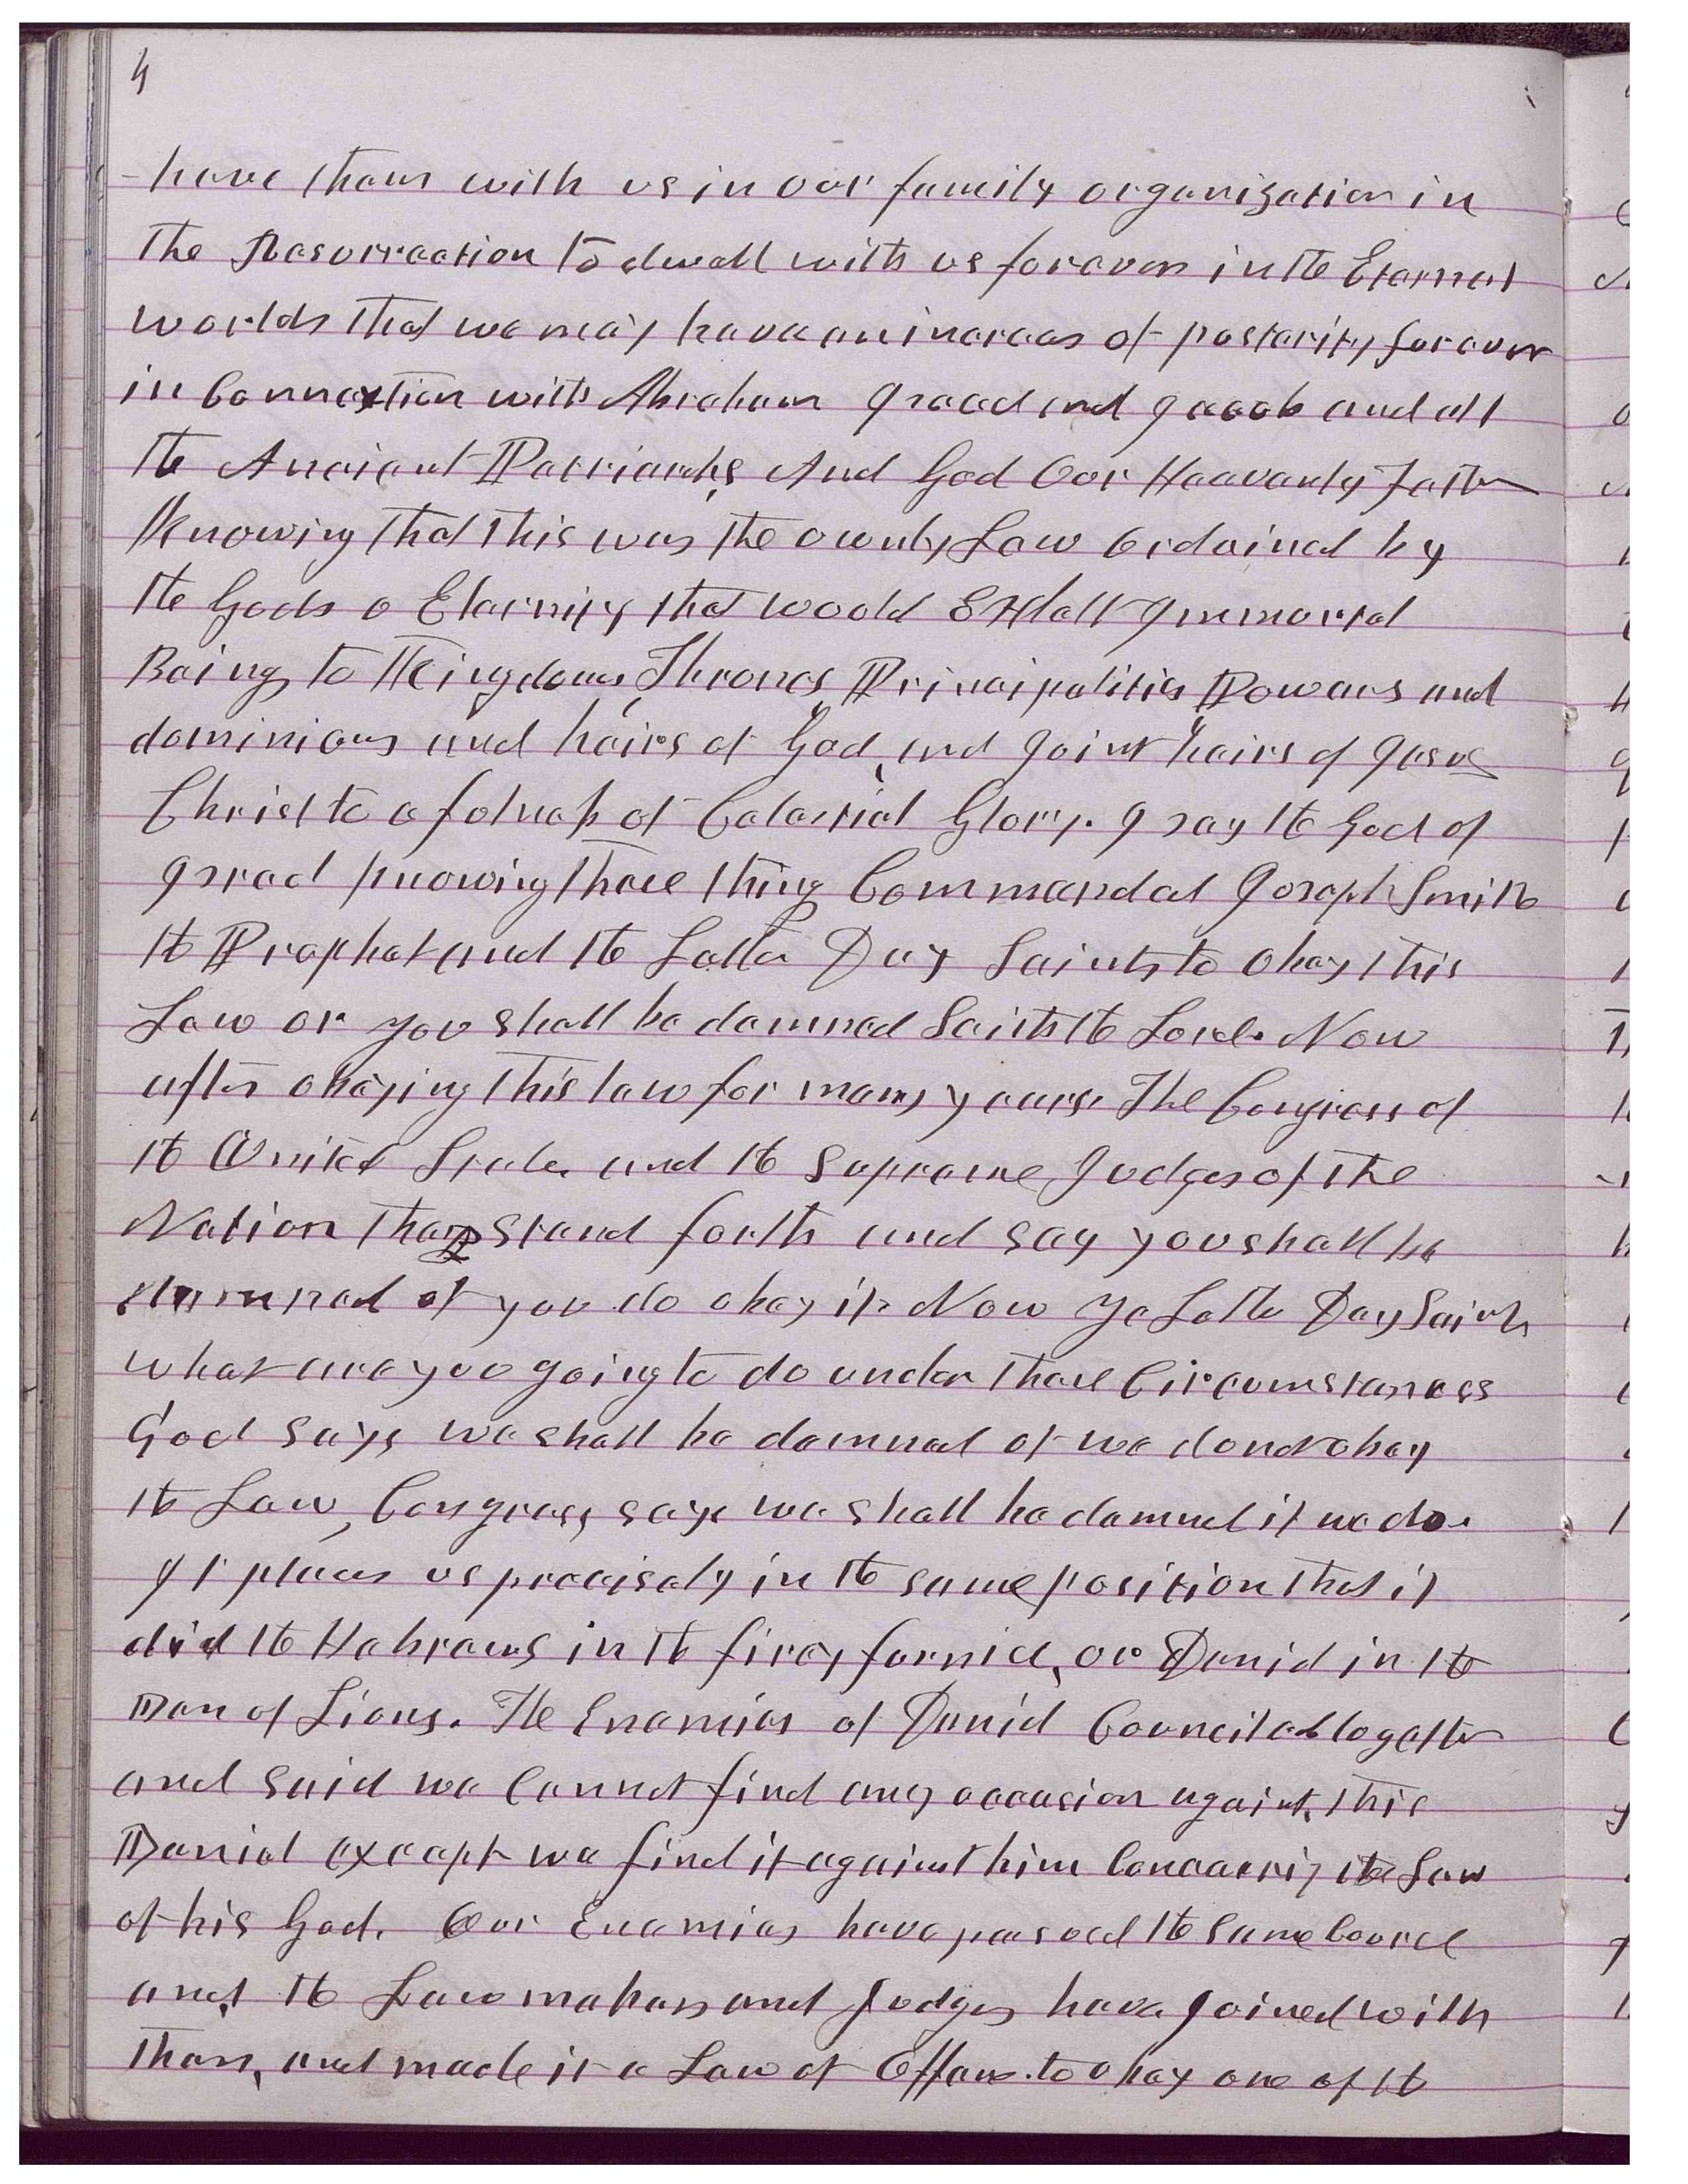 4
have them with us in our family organization in
the Resurrection to dwell with us forever in the Eternal
worlds that we may have an increas of posterity forever
in Connextion with Abraham Isaac and Jacob and all
the Ancient Patriarchs, And God Our Heavenly Father
Knowing that this was the ownly Law Ordained by
the Gods o Eternity that would Exhalt Immortal
Being to Kingdoms, Thrones, Principalities Powers and
dominions and heirs of God, and Joint heirs of Jesus
Christ to a fulness of Celestial Glory. I say the God of
Israel knowing these thing Commanded Joseph Smith
the Prophet and the Latter Day Saints to obey this
Law or you shall be damned Saith the Lord. Now
after obeying this law for many years, The Congress of
the United States and the Supreme Judges of the
Nation they stand forth and say you shall be
damned if you do obey it. Now ye Latter Day Saints
what are you going to do under these Circumstances
God says we shall be damned if we do not obey
the Law, Congress says we shall be damned if we do.
It places us precisely in the same position that it
did the Hebrews in the firey furnice, or Daniel in the
Den of Lions. The Enemies of Daniel Counciled together
and said we Cannot find any occasion against, this
Daniel except we find it against him Concerning the Law
of his God. Our Enemies have persued the same Course
and, the Law makers and Judges have Joined with
them, and made it a Law of Offence to obey one of the